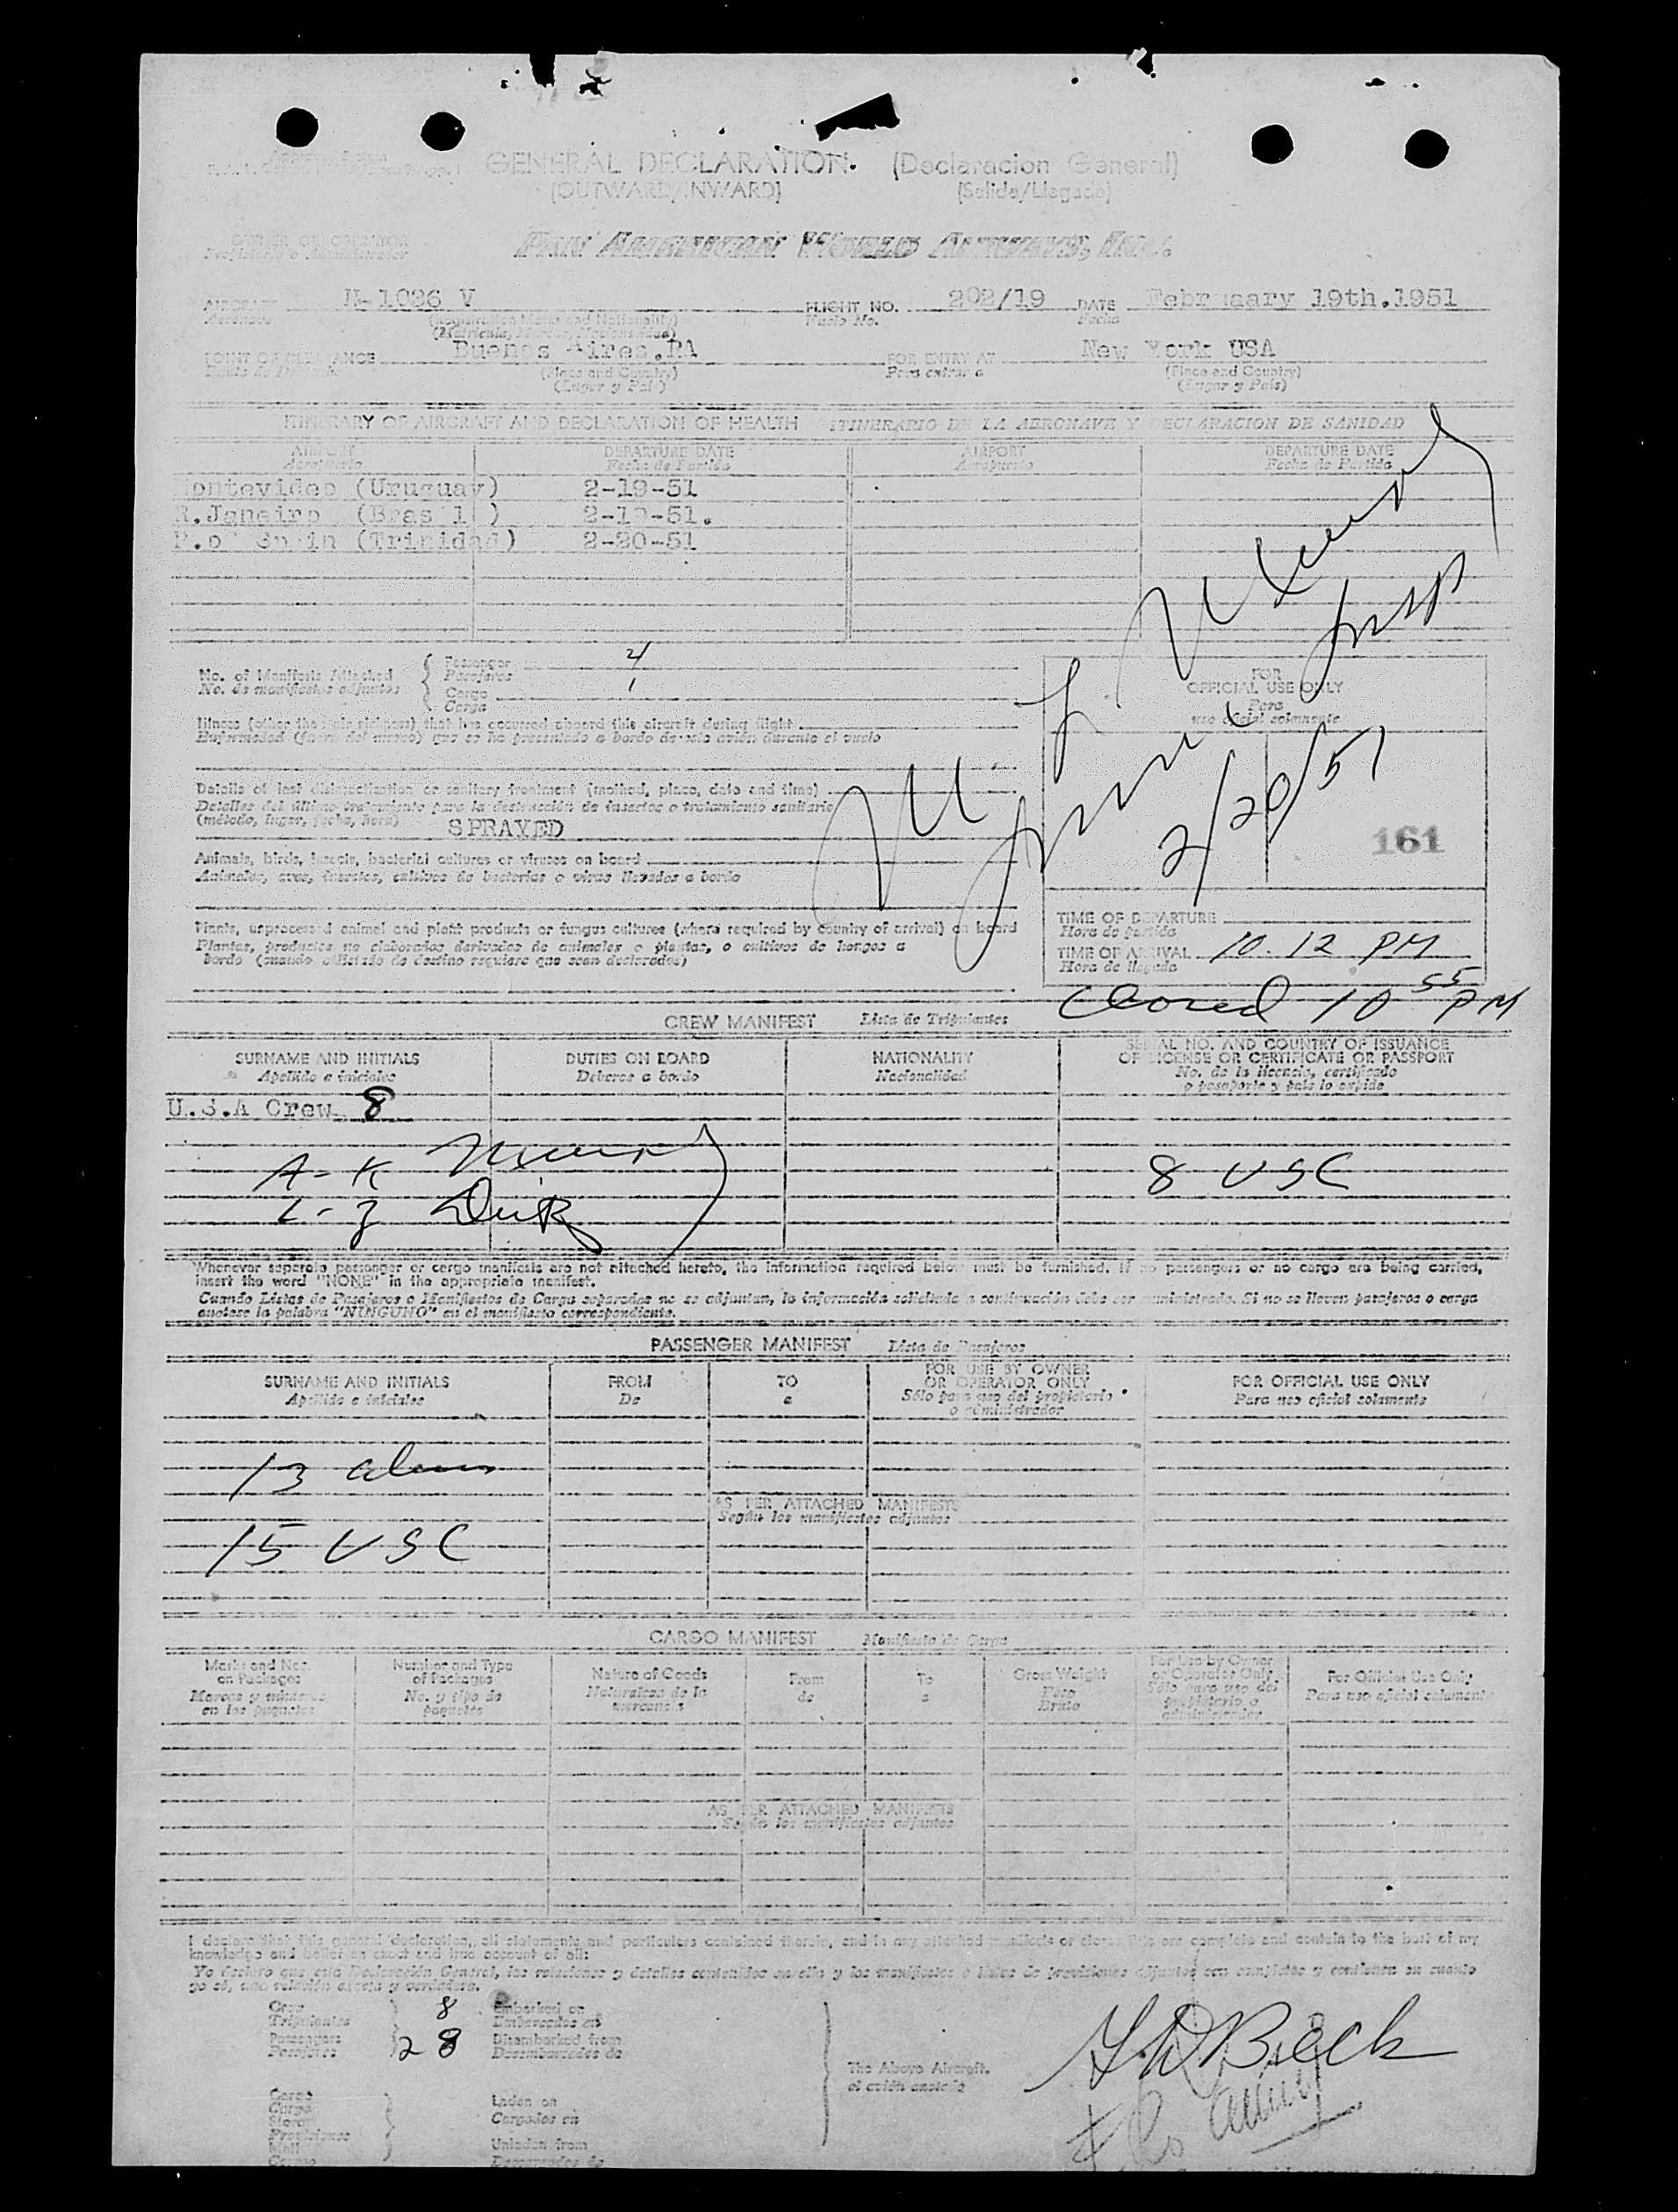 GENERAL DECLARATION. (Declaracion General)
(OUTWARD/INWARD) (Salida/Llegada)
OWNER OR OPERATOR
Propietario o Administrador
PAN AMERICAN WORLD AIRWAYS, INC.
AIRCRAFT N-1026 V FLIGHT NO. 202/19 DATE February 19th.1951
Aeronave (Registration Marks and Nationality) Vuelo No. Fecha
(Matricula, Marcas, Nacionalidad)
POINT OF CLEARANCE Buenos Aires.RA FOR ENTRY AT New York USA
(Place and Country) Para entrar a (Place and Country)
(Lugar y País) (Lugar y País)
ITINERARY OF AIRCRAFT AND DECLARATION OF HEALTH ITINERARIO DE LA AERONAVE Y DECLARACION DE SANIDAD
AIRPORT DEPARTURE DATE AIRPORT DEPARTURE DATE
Aeropuerto Fecha de Partida Aeropuerto Fecha de Partida
Montevideo (Uruguay) 2-19-51
R.Janeiro (Brasil) 2-19-51.
P.of Spain (Trinidad) 2-20-51
No. of Manifests Attached
No. de manifiestos adjuntos
Passenger
Pasajeros
Cargo 1
Carga
FOR
OFFICIAL USE ONLY
Para
uso oficial solamente
Illness (other than air sickness) that has occurred aboard this aircraft during flight
Enfermedad (fuera del mareo) que se ha presentado a bordo de este avión durante el vuelo
2/20/51
161
Details of last disinsectization or sanitary treatment (method, place, date and time)
Detalles del último tratamiento para la destrucción de insectos o tratamiento sanitario
(método, lugar, fecha, hora) SPRAYED
Animals, birds, insects, bacterial cultures or viruses on board
Animales, aves, insectos, cultivos de bacterias o virus llevados a bordo
Plants, unprocessed animal and plant products or fungus cultures (where required by country of arrival) on board
Plantas, productos no elaborados derivados de animales o plantas, o cultivos de hongos a
bordo (cuando el Estado de destino requiere que sean declarados)
TIME OF DEPARTURE
Hora de partida
TIME OF ARRIVAL 10.12 PM
Hora de llegada
Closed 10 55 PM
CREW MANIFEST Lista de Tripulantes
SURNAME AND INITIALS DUTIES ON BOARD NATIONALITY SERIAL NO. AND COUNTRY OF ISSUANCE
OF LICENSE OR CERTIFICATE OR PASSPORT
Apellido e iniciales Deberes a bordo Nacionalidad No. de la licencia, certificado
o pasaporte y país lo expide
U.S.A Crew 8
A-K
L-Z
8 USC
Whenever separate passenger or cargo manifests are not attached hereto, the information required below must be furnished. If no passengers or no cargo are being carried,
insert the word "NONE" in the appropriate manifest.
Cuando Listas de Pasajeros o Manifiestos de Carga separados no se adjuntan, la información solicitada a continuación debe ser suministrada. Si no se llevan pasajeros o carga
anótese la palabra "NINGUNO" en el manifiesto correspondiente.
PASSENGER MANIFEST Lista de Pasajeros
SURNAME AND INITIALS FROM TO FOR USE BY OWNER
OR OPERATOR ONLY FOR OFFICIAL USE ONLY
Apellido e iniciales De a Sólo para uso del propietario
o administrador Para uso oficial solamente
13 aliens
AS PER ATTACHED MANIFESTS
Según los manifiestos adjuntos
15 USC
CARGO MANIFEST Manifiesto de Carga
Marks and Nos.
on Packages
Marcas y números
en los paquetes
Number and Type
of Packages
No. y tipo de
paquetes
Nature of Goods
Naturaleza de la
mercancía
From
de
To
a
Gross Weight
Peso
Bruto
For Use by Owner
or Operator Only
Sólo para uso del
propietario o
administrador
For Official Use Only
Para uso oficial solamente
AS PER ATTACHED MANIFESTS
Según los manifiestos adjuntos
I declare that this general declaration, all statements and particulars contained therein, and in any attached manifests or stores lists are complete and contain to the best of my
knowledge and belief an exact and true account of all:
Yo declaro que esta Declaración General, las relaciones y detalles contenidos en ella y los manifiestos o listas de provisiones adjuntos son completos y contienen en cuanto
yo sé, una relación exacta y verdadera.
Crew 8 Embarked on
Tripulantes Embarcados en
Passengers 28 Disembarked from
Pasajeros Desembarcados de
The Above Aircraft.
Cargo
Carga Laden on
Stores Cargados en
Provisiones
Mail Unladen from
Correo